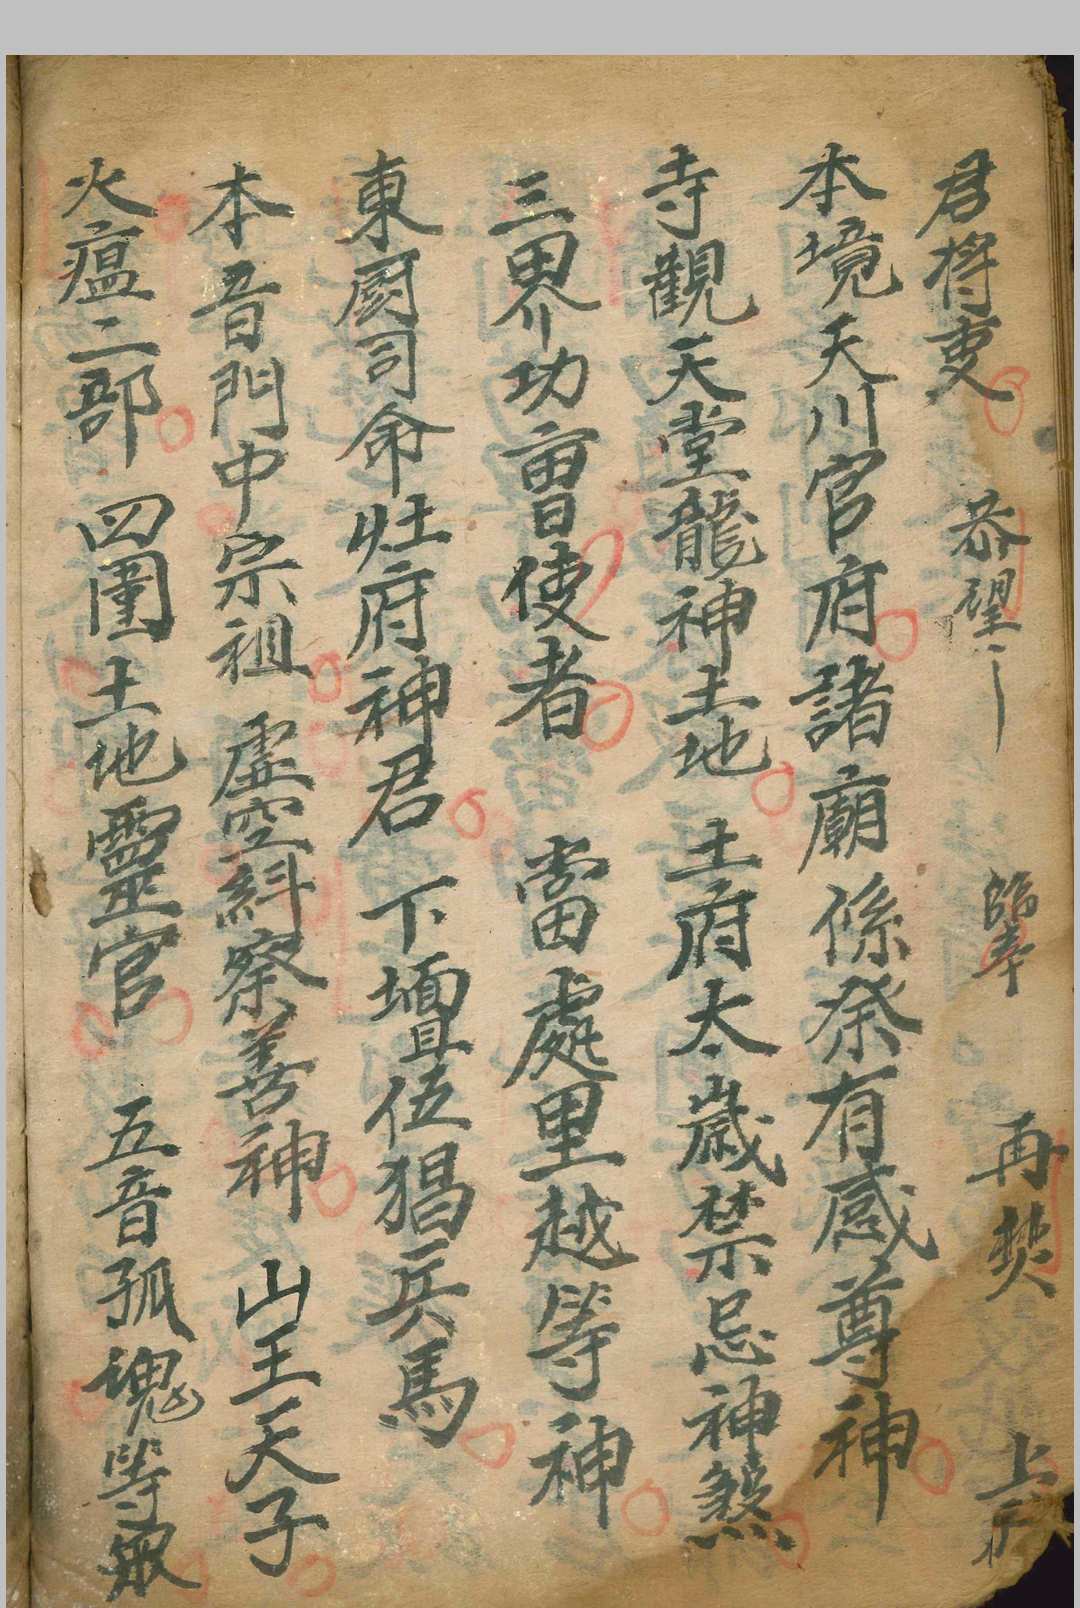 君將吏 恭望 臨奉 再焚 上
本境天川官府諸廟係祭有感尊神
寺觀天堂龍神土地 土府太歲禁忌神煞
三界功曹使者 當處里越等神
東厨司命灶府神君 下壇伍猖兵馬
本音門中宗祖 虛空糾察善神 山王天子
火瘟二部 四圍土地靈官 五音孤魂等衆